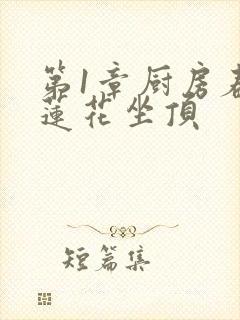 第1章厨房春
蓮花坐頂
短篇集